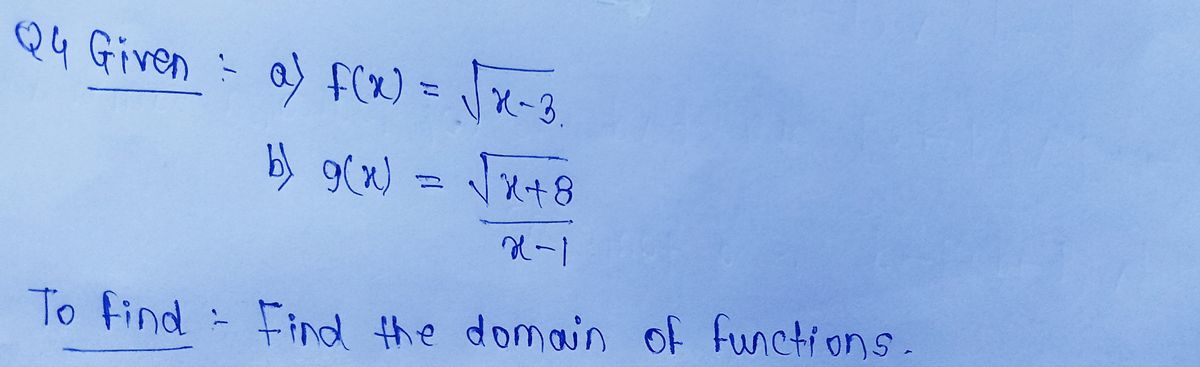 Q4 Given :- a) f(x) = √x-3.
b) g(x) = √x+8
x-1
To find :- Find the domain of functions.